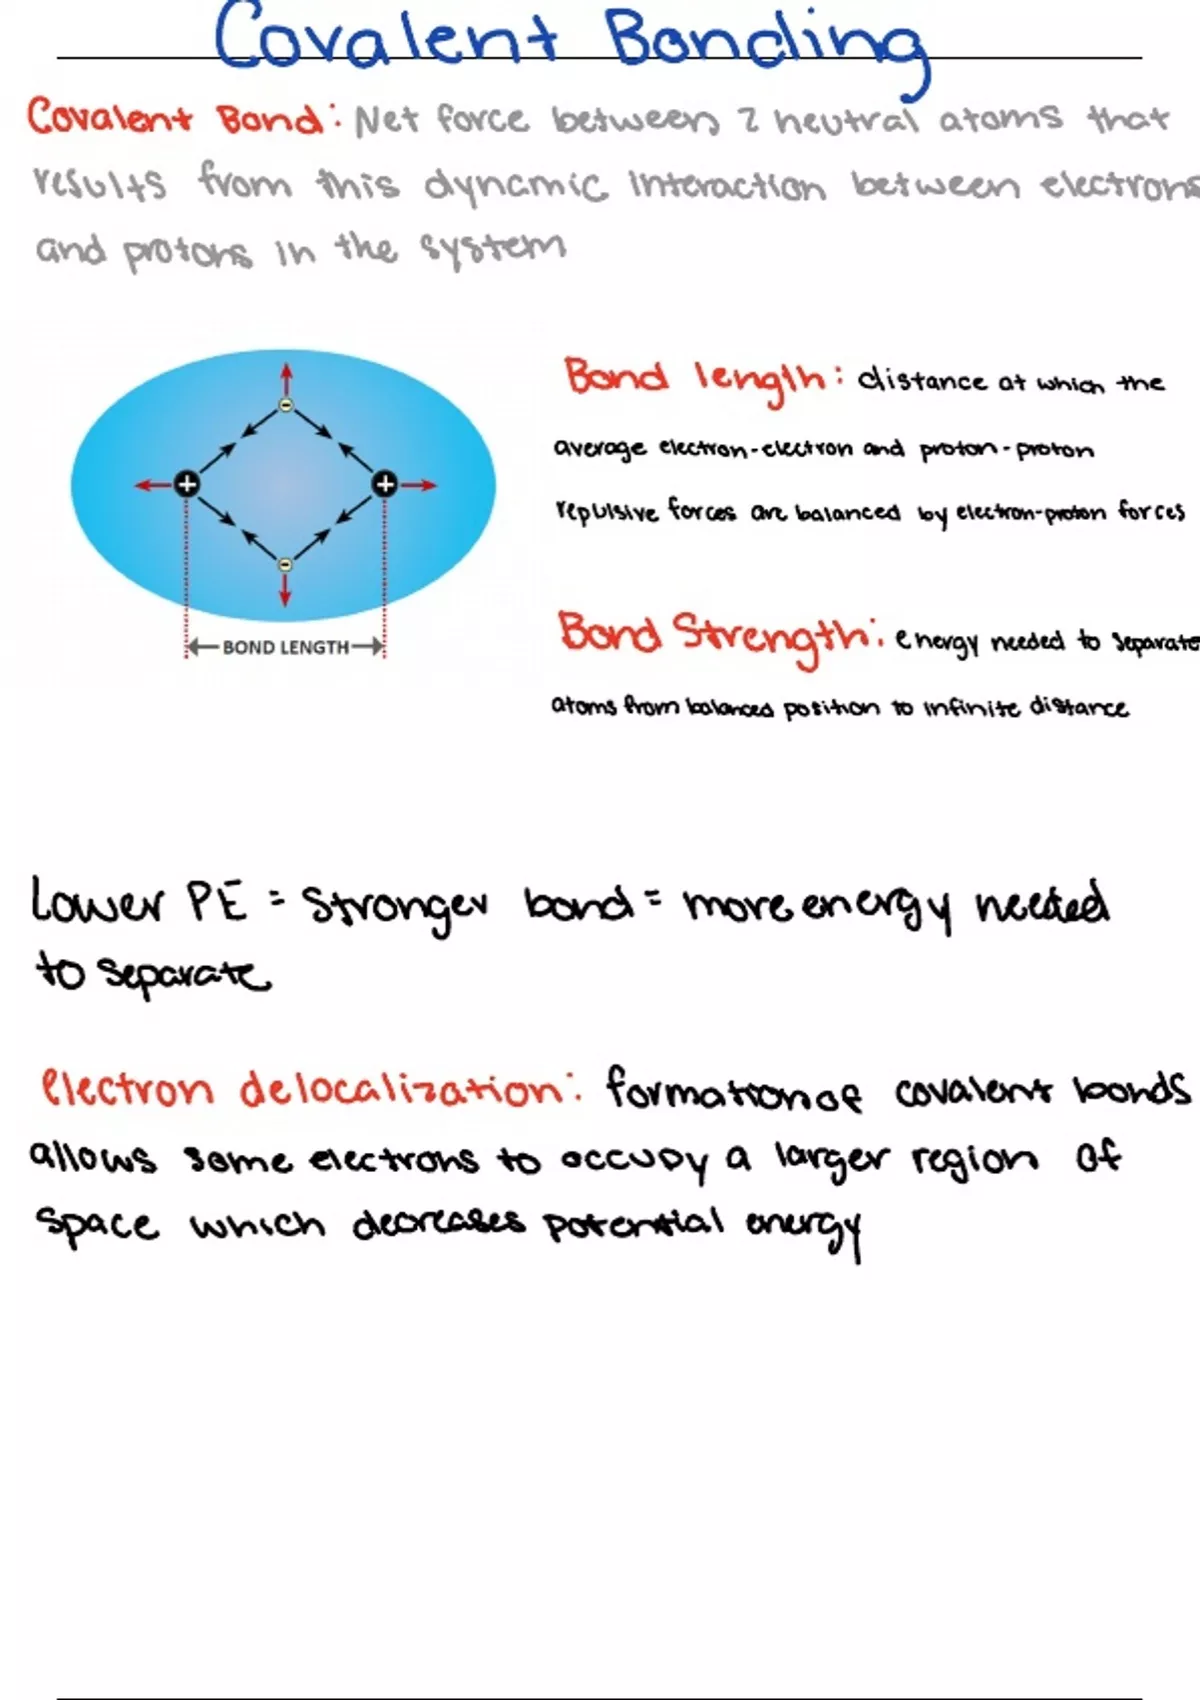 Covalent Bonding
Covalent Bond: Net force between 2 neutral atoms that
results from this dynamic interaction between electrons
and protons in the system
Bond length: distance at which the
average electron-electron and proton-proton
repulsive forces are balanced by electron-proton forces
BOND LENGTH
Bond Strength: energy needed to separate
atoms from balanced position to infinite distance
Lower PE = Stronger bond = more energy needed
to separate
electron delocalization: formation of covalent bonds
allows some electrons to occupy a larger region of
space which decreases potential energy